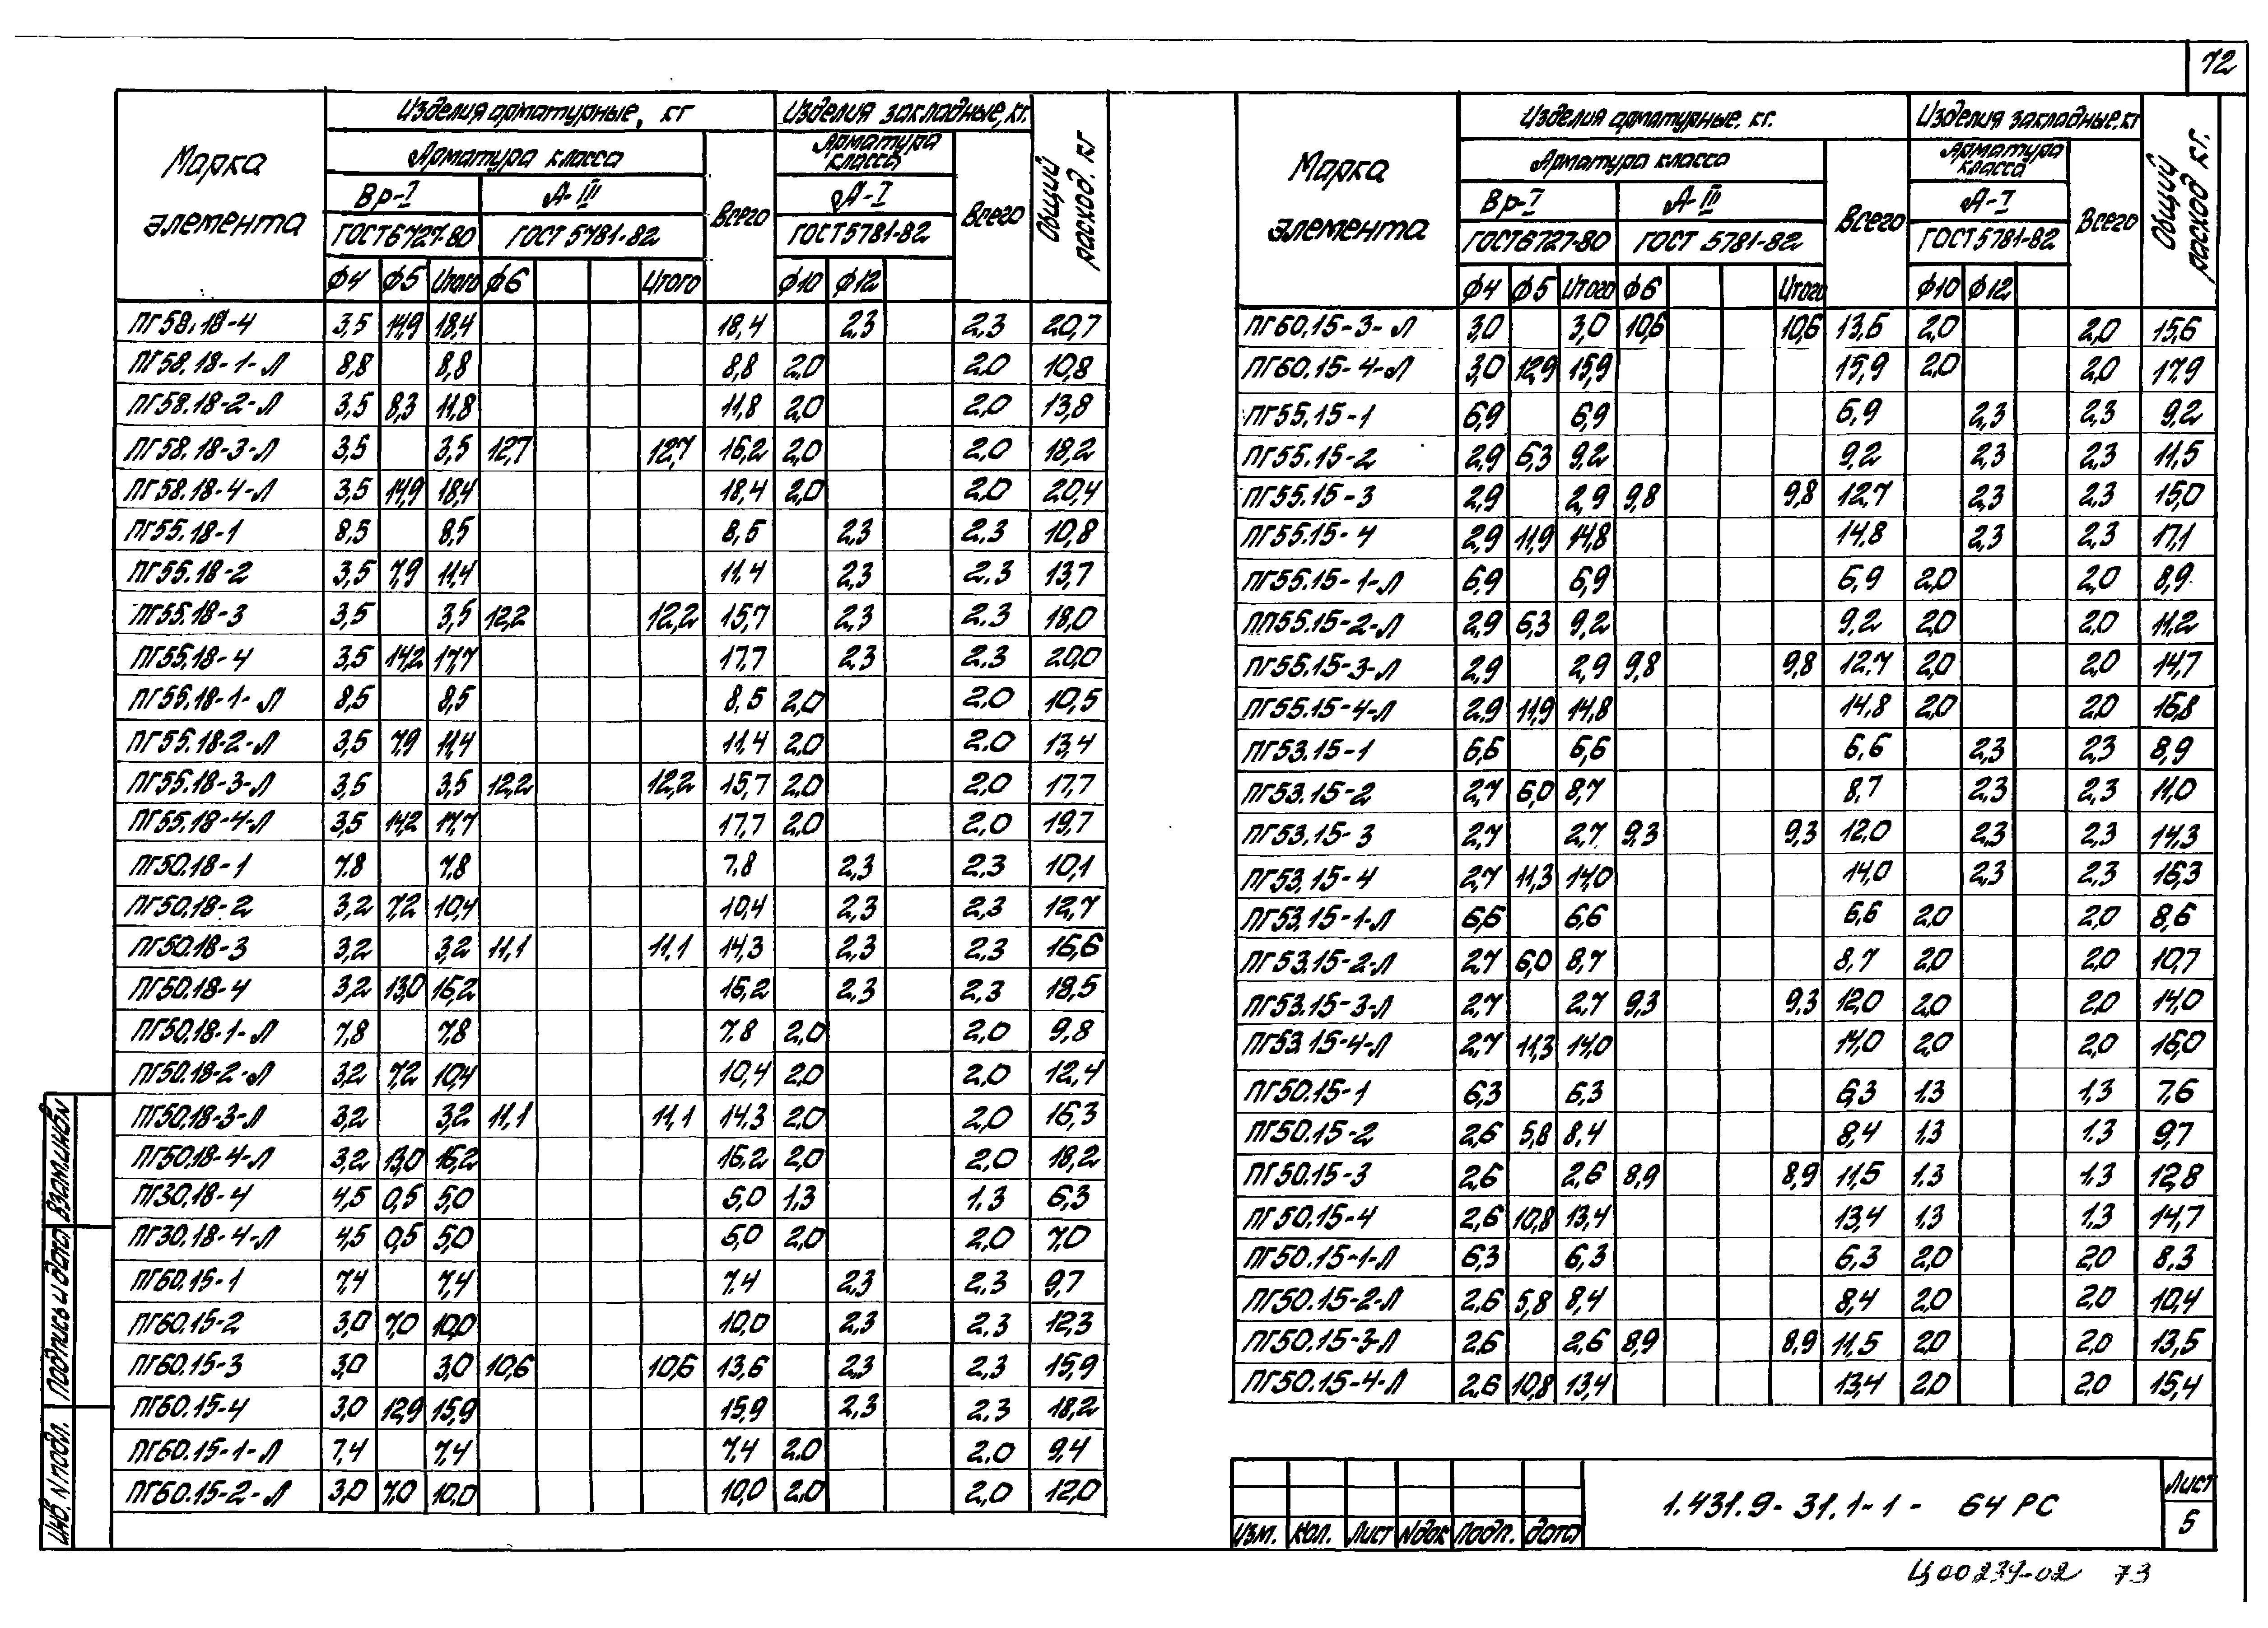 72
Марка элемента | Изделия арматурные, кг | Изделия закладные, кг. | Общий расход. кг
Арматура класса | Всего | Арматура класса | Всего
Вр-I | А-III | А-I
ГОСТ 6727-80 | ГОСТ 5781-82 | ГОСТ 5781-82
ф4 | ф5 | Итого | ф6 | Итого | ф10 | ф12
ПГ58.18-4 3,5 14,9 18,4 18,4 2,3 2,3 20,7
ПГ58.18-1-Л 8,8 8,8 8,8 2,0 2,0 10,8
ПГ58.18-2-Л 3,5 8,3 11,8 11,8 2,0 2,0 13,8
ПГ58.18-3-Л 3,5 3,5 12,7 12,7 16,2 2,0 2,0 18,2
ПГ58.18-4-Л 3,5 14,9 18,4 18,4 2,0 2,0 20,4
ПГ55.18-1 8,5 8,5 8,5 2,3 2,3 10,8
ПГ55.18-2 3,5 7,9 11,4 11,4 2,3 2,3 13,7
ПГ55.18-3 3,5 3,5 12,2 12,2 15,7 2,3 2,3 18,0
ПГ55.18-4 3,5 14,2 17,7 17,7 2,3 2,3 20,0
ПГ55.18-1-Л 8,5 8,5 8,5 2,0 2,0 10,5
ПГ55.18-2-Л 3,5 7,9 11,4 11,4 2,0 2,0 13,4
ПГ55.18-3-Л 3,5 3,5 12,2 12,2 15,7 2,0 2,0 17,7
ПГ55.18-4-Л 3,5 14,2 17,7 17,7 2,0 2,0 19,7
ПГ50.18-1 7,8 7,8 7,8 2,3 2,3 10,1
ПГ50.18-2 3,2 7,2 10,4 10,4 2,3 2,3 12,7
ПГ50.18-3 3,2 3,2 11,1 11,1 14,3 2,3 2,3 16,6
ПГ50.18-4 3,2 13,0 16,2 16,2 2,3 2,3 18,5
ПГ50.18-1-Л 7,8 7,8 7,8 2,0 2,0 9,8
ПГ50.18-2-Л 3,2 7,2 10,4 10,4 2,0 2,0 12,4
ПГ50.18-3-Л 3,2 3,2 11,1 11,1 14,3 2,0 2,0 16,3
ПГ50.18-4-Л 3,2 13,0 16,2 16,2 2,0 2,0 18,2
ПГ30.18-4 4,5 0,5 5,0 5,0 1,3 1,3 6,3
ПГ30.18-4-Л 4,5 0,5 5,0 5,0 2,0 2,0 7,0
ПГ60.15-1 7,4 7,4 7,4 2,3 2,3 9,7
ПГ60.15-2 3,0 7,0 10,0 10,0 2,3 2,3 12,3
ПГ60.15-3 3,0 3,0 10,6 10,6 13,6 2,3 2,3 15,9
ПГ60.15-4 3,0 12,9 15,9 15,9 2,3 2,3 18,2
ПГ60.15-1-Л 7,4 7,4 7,4 2,0 2,0 9,4
ПГ60.15-2-Л 3,0 7,0 10,0 10,0 2,0 2,0 12,0
Марка элемента | Изделия арматурные, кг. | Изделия закладные, кг | Общий расход кг.
Арматура класса | Всего | Арматура класса | Всего
Вр-I | А-III | А-I
ГОСТ 6727-80 | ГОСТ 5781-82 | ГОСТ 5781-82
ф4 | ф5 | Итого | ф6 | Итого | ф10 | ф12
ПГ60.15-3-Л 3,0 3,0 10,6 10,6 13,6 2,0 2,0 15,6
ПГ60.15-4-Л 3,0 12,9 15,9 15,9 2,0 2,0 17,9
ПГ55.15-1 6,9 6,9 6,9 2,3 2,3 9,2
ПГ55.15-2 2,9 6,3 9,2 9,2 2,3 2,3 11,5
ПГ55.15-3 2,9 2,9 9,8 9,8 12,7 2,3 2,3 15,0
ПГ55.15-4 2,9 11,9 14,8 14,8 2,3 2,3 17,1
ПГ55.15-1-Л 6,9 6,9 6,9 2,0 2,0 8,9
ПП55.15-2-Л 2,9 6,3 9,2 9,2 2,0 2,0 11,2
ПГ55.15-3-Л 2,9 2,9 9,8 9,8 12,7 2,0 2,0 14,7
ПГ55.15-4-Л 2,9 11,9 14,8 14,8 2,0 2,0 16,8
ПГ53.15-1 6,6 6,6 6,6 2,3 2,3 8,9
ПГ53.15-2 2,7 6,0 8,7 8,7 2,3 2,3 11,0
ПГ53.15-3 2,7 2,7 9,3 9,3 12,0 2,3 2,3 14,3
ПГ53.15-4 2,7 11,3 14,0 14,0 2,3 2,3 16,3
ПГ53.15-1-Л 6,6 6,6 6,6 2,0 2,0 8,6
ПГ53.15-2-Л 2,7 6,0 8,7 8,7 2,0 2,0 10,7
ПГ53.15-3-Л 2,7 2,7 9,3 9,3 12,0 2,0 2,0 14,0
ПГ53.15-4-Л 2,7 11,3 14,0 14,0 2,0 2,0 16,0
ПГ50.15-1 6,3 6,3 6,3 1,3 1,3 7,6
ПГ50.15-2 2,6 5,8 8,4 8,4 1,3 1,3 9,7
ПГ50.15-3 2,6 2,6 8,9 8,9 11,5 1,3 1,3 12,8
ПГ50.15-4 2,6 10,8 13,4 13,4 1,3 1,3 14,7
ПГ50.15-1-Л 6,3 6,3 6,3 2,0 2,0 8,3
ПГ50.15-2-Л 2,6 5,8 8,4 8,4 2,0 2,0 10,4
ПГ50.15-3-Л 2,6 2,6 8,9 8,9 11,5 2,0 2,0 13,5
ПГ50.15-4-Л 2,6 10,8 13,4 13,4 2,0 2,0 15,4
Инв. N подл. | Подпись и дата | Взам. инв. N
Изм. Кол. Лист Nдок Подп. Дата
1.431.9-31.1-1- 64 РС
Лист
5
Ц00234-02 73